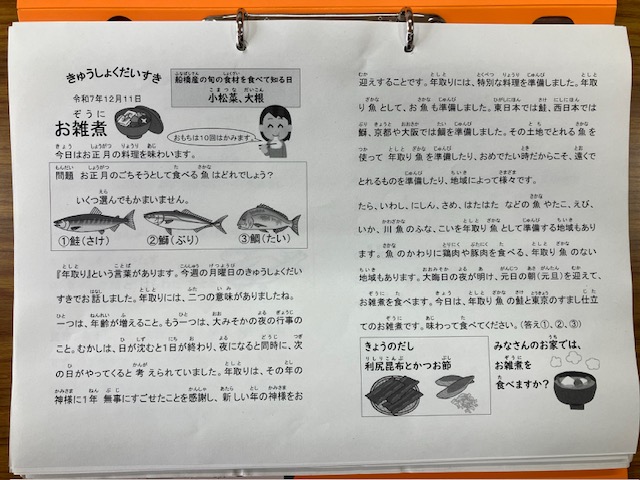 きゅうしょくだいすき
令和7年12月11日
船橋産の旬の食材を食べて知る日
小松菜、大根
お雑煮
おもちは10回はかみます。
今日はお正月の料理を味わいます。
問題 お正月のごちそうとして食べる魚はどれでしょう?
いくつ選んでもかまいません。
①鮭(さけ) ②鰤(ぶり) ③鯛(たい)
『年取り』という言葉があります。今週の月曜日のきゅうしょくだい
すきでお話しました。年取りには、二つの意味がありましたね。
一つは、年齢が増えること。もう一つは、大みそかの夜の行事の
こと。むかしは、日が沈むと1日が終わり、夜になると同時に、次
の日がやってくると考えられていました。年取りは、その年の
神様に1年無事にすごせたことを感謝し、新しい年の神様をお
迎えすることです。年取りには、特別な料理を準備しました。年取
り魚として、お魚も準備しました。東日本では鮭、西日本では
鰤、京都や大阪では鯛を準備しました。その土地でとれる魚を
使って年取り魚を準備したり、おめでたい時だからこそ、遠くで
とれるものを準備したり、地域によって様々です。
たら、いわし、にしん、さめ、はたはた などの魚やたこ、えび、
いか、川魚のふな、こいを年取り魚として準備する地域もあり
ます。魚のかわりに鶏肉や豚肉を食べる、年取り魚のない
地域もあります。大晦日の夜が明け、元日の朝(元旦)を迎えて、
お雑煮を食べます。今日は、年取り魚の鮭と東京のすまし仕立
てのお雑煮です。味わって食べてください。(答え①、②、③)
きょうのだし
利尻昆布とかつお節
みなさんのお家では、
お雑煮を
食べますか?